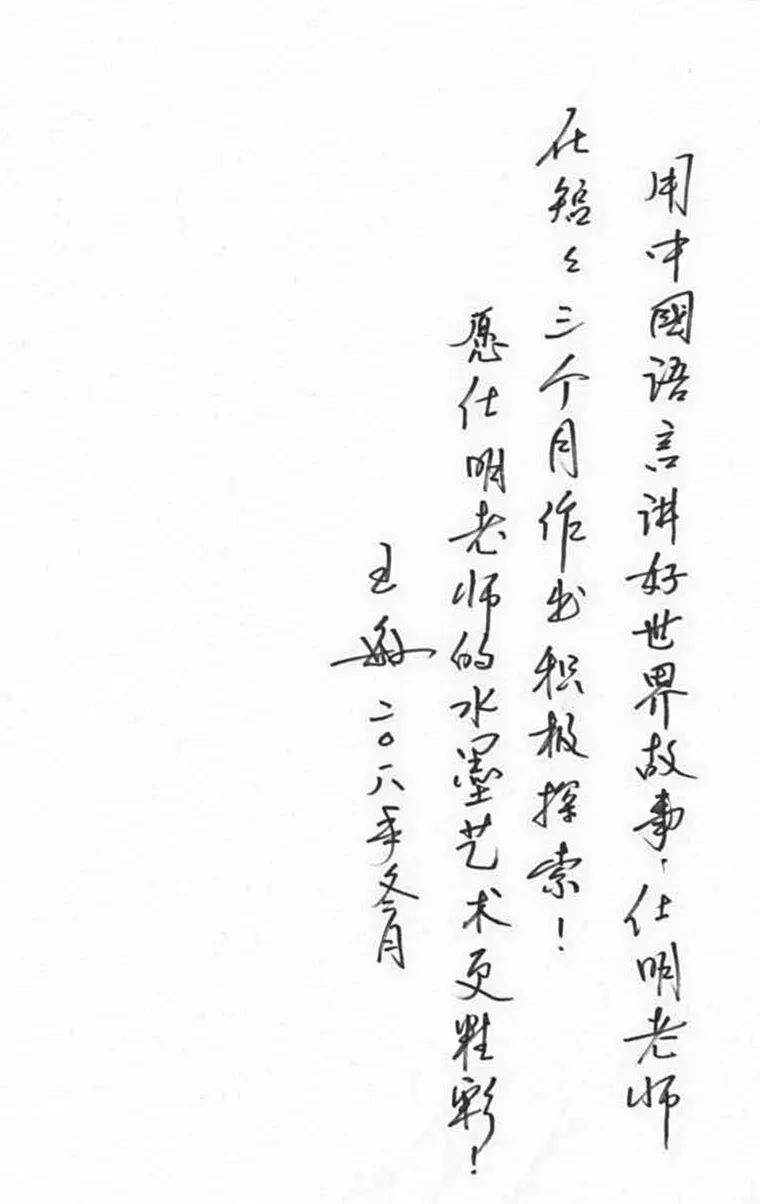 用中國语言讲好世界故事,仕明老师
在短々三个月作出积极探索！
愿仕明老师的水墨艺术更精彩！
王敏
二〇一八年冬月